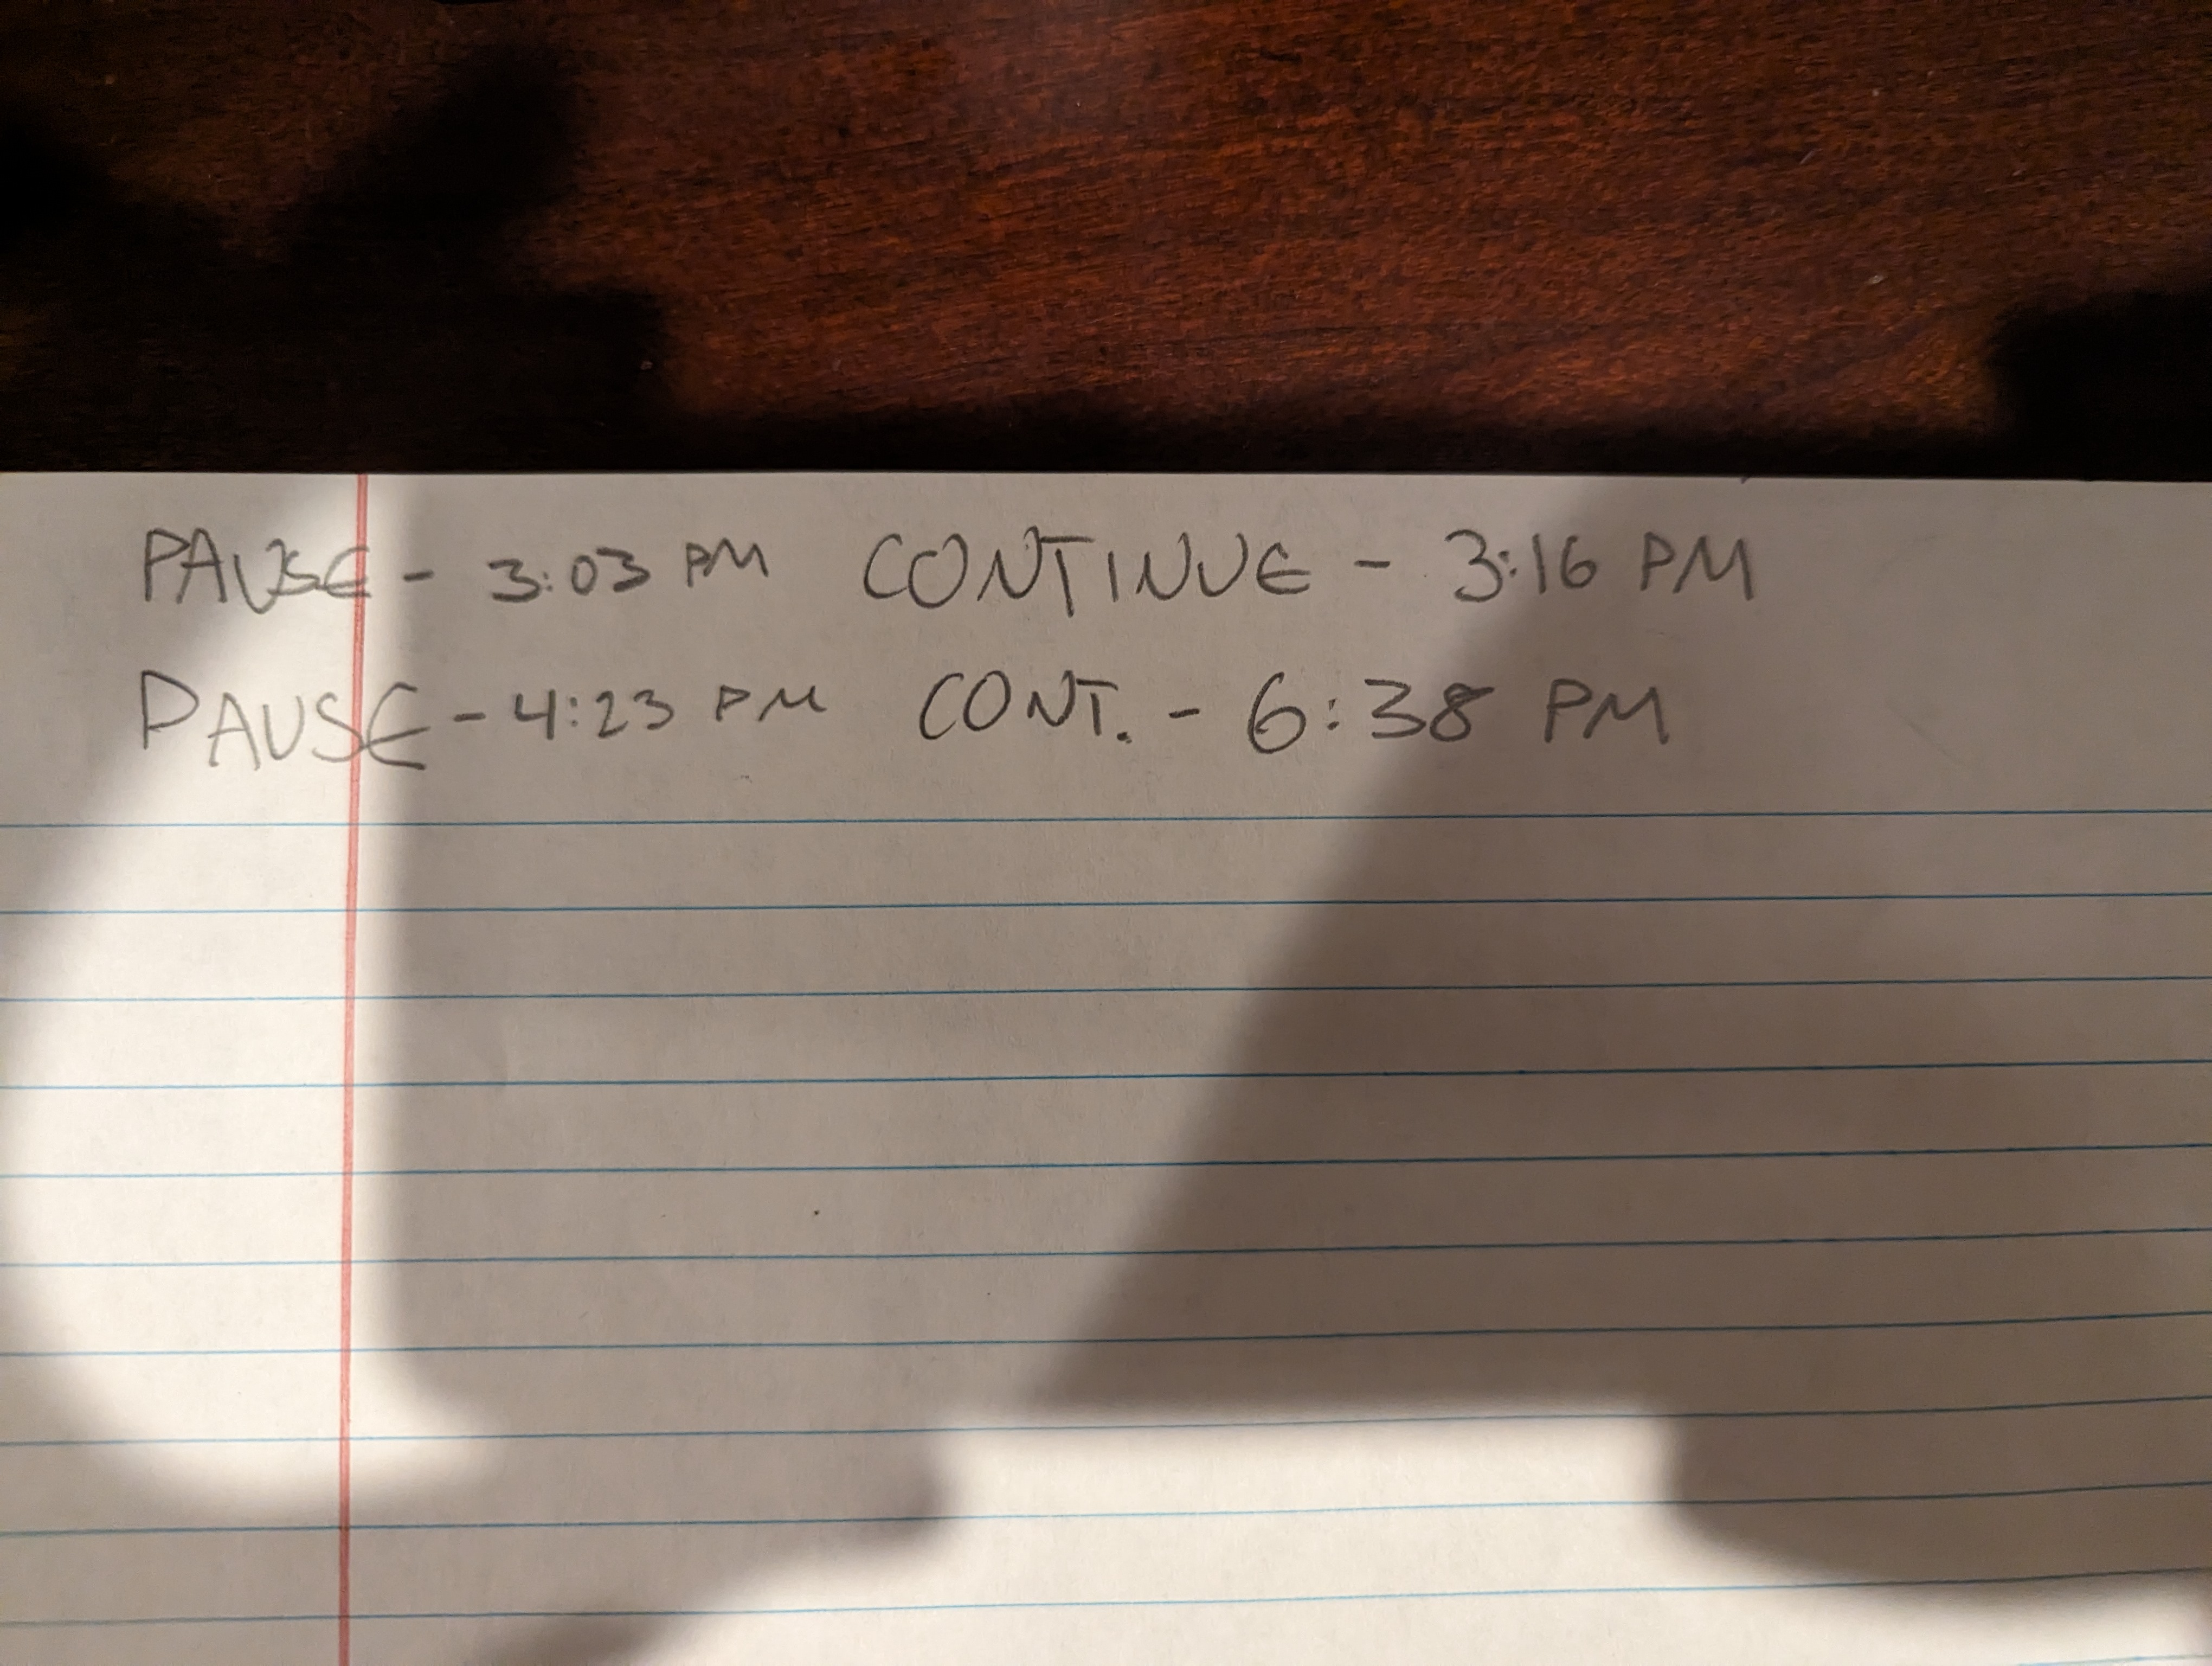 PAUSE - 3:03 PM CONTINUE - 3:16 PM
PAUSE - 4:23 PM CONT. - 6:38 PM